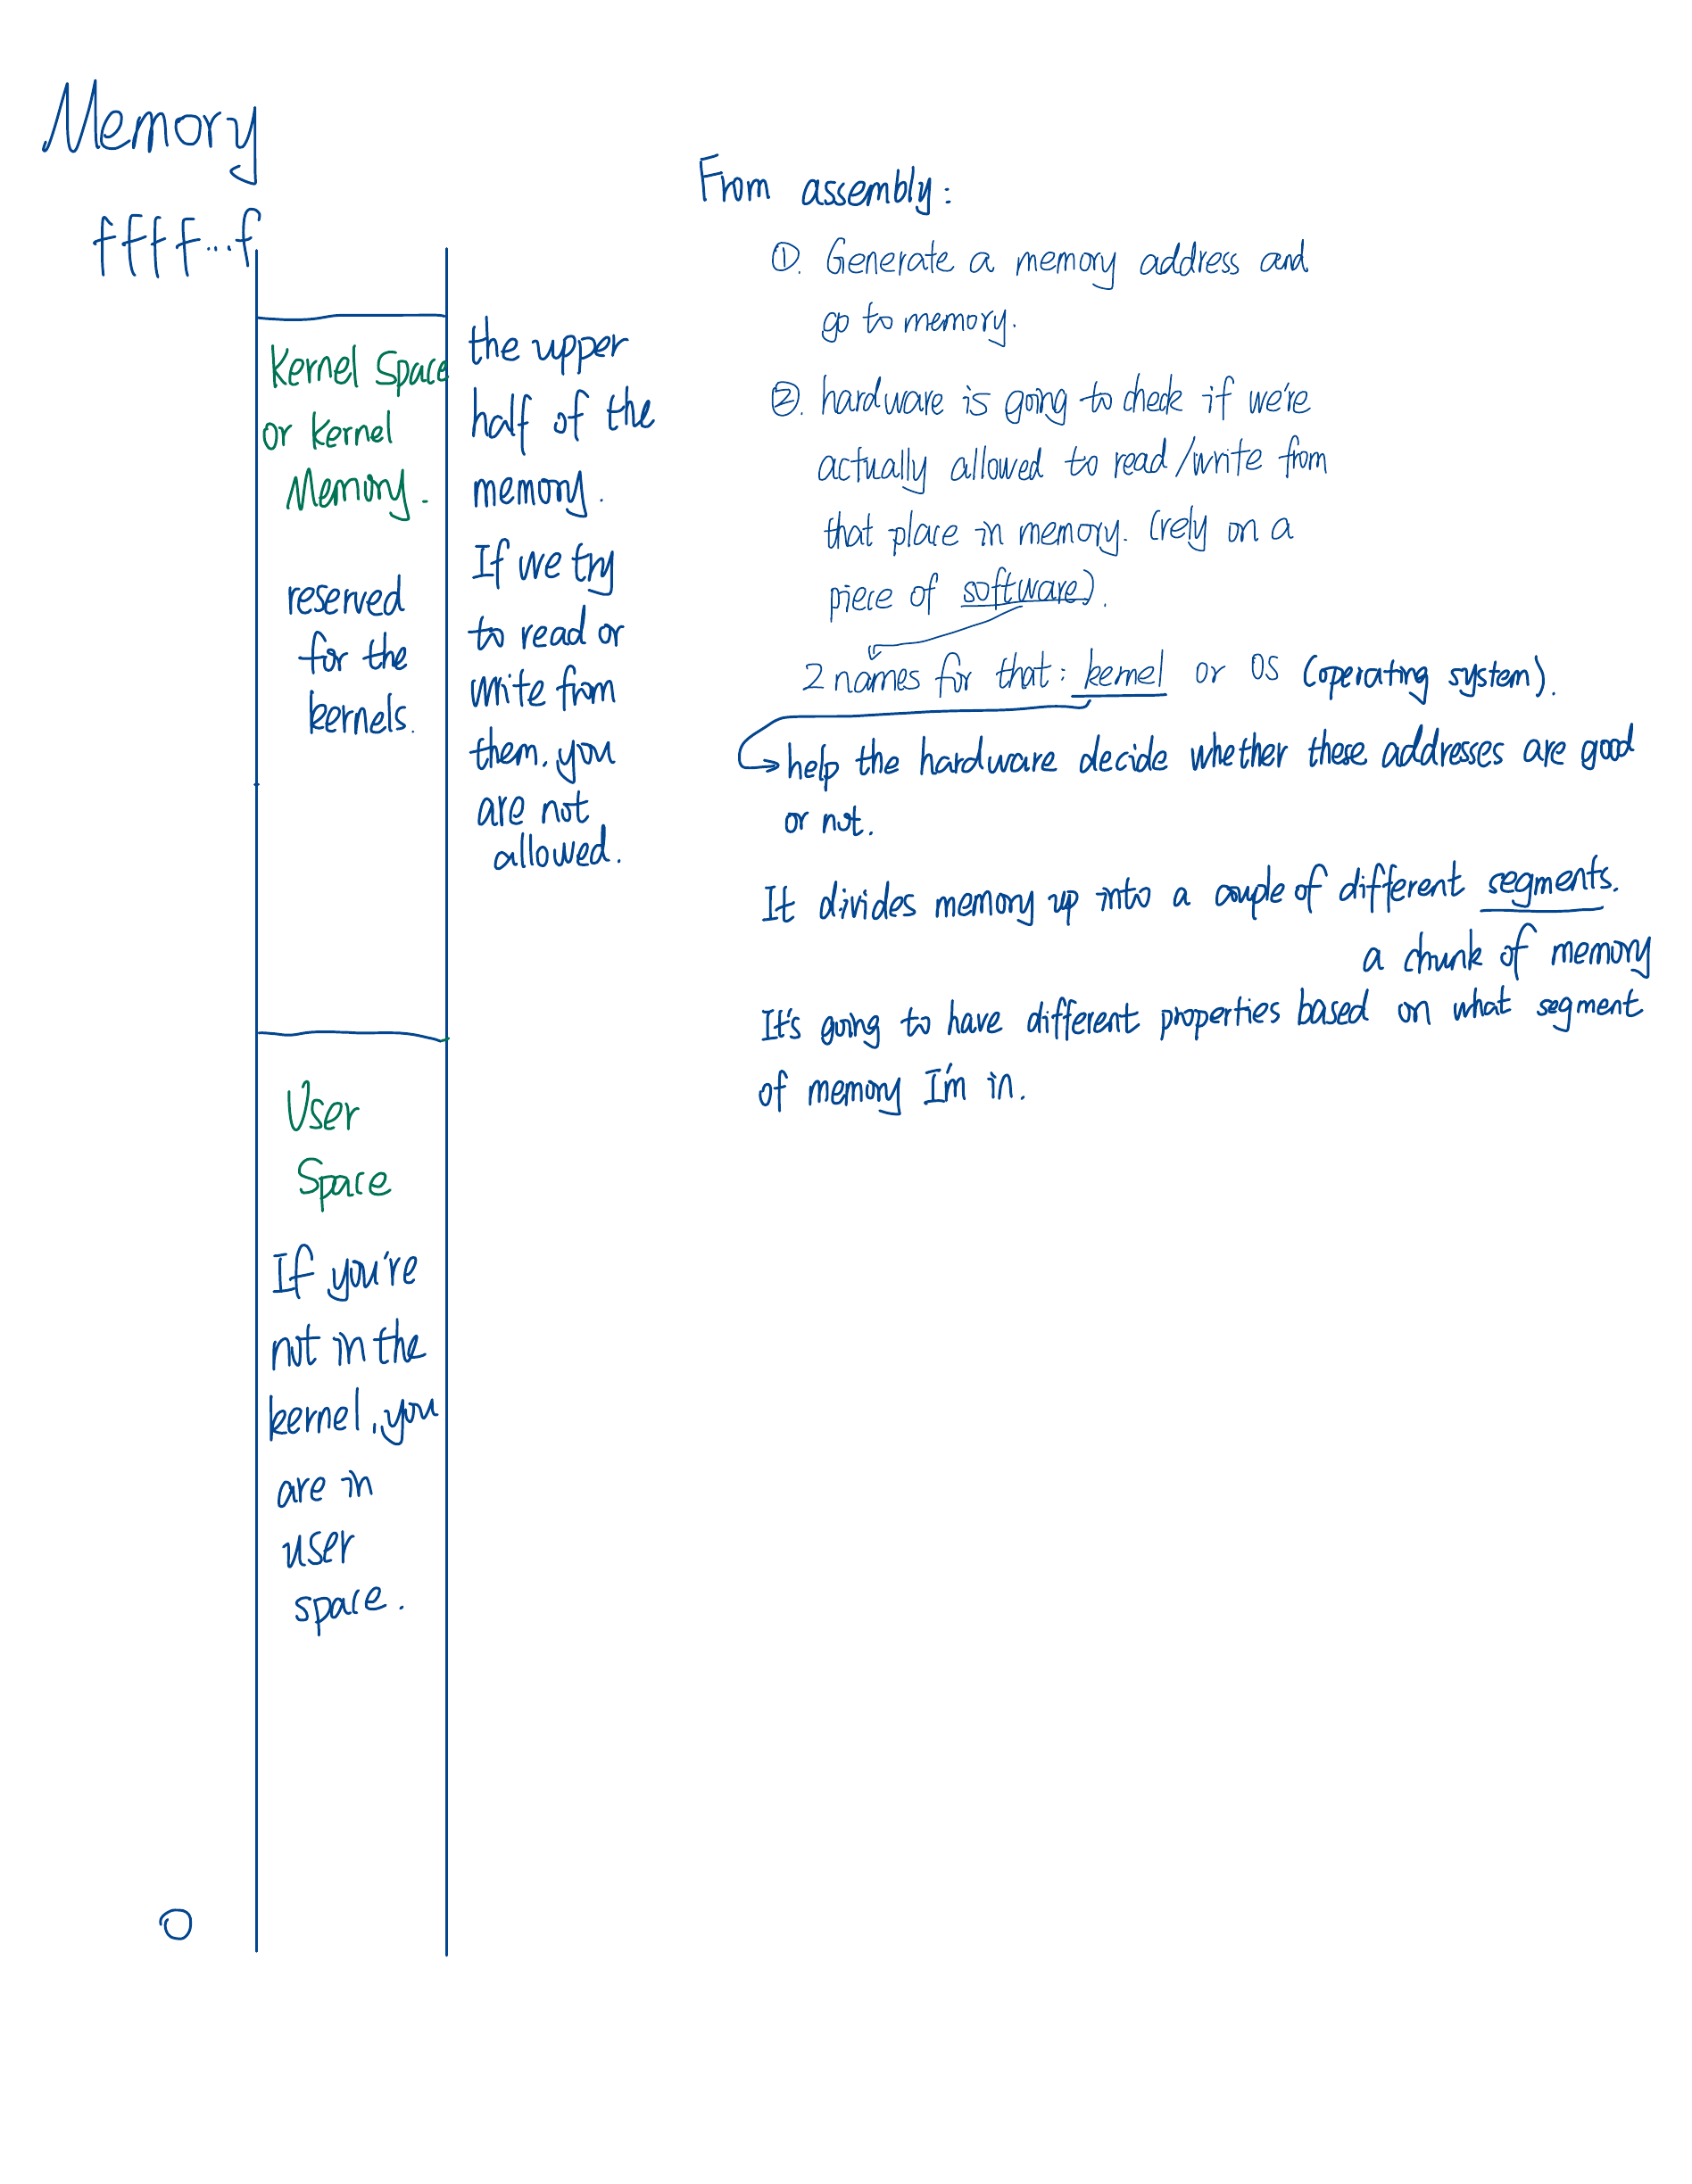 Memory
ffff...f
Kernel Space
or kernel
Memory.
reserved
for the
kernels.
the upper
half of the
memory.
If we try
to read or
write from
them, you
are not
allowed.
User
Space
If you're
not in the
kernel, you
are in
user
space.
0
From assembly:
①. Generate a memory address and
go to memory.
②. hardware is going to check if we're
actually allowed to read/write from
that place in memory. (rely on a
piece of software).
2 names for that: kernel or OS (operating system).
help the hardware decide whether these addresses are good
or not.
It divides memory up into a couple of different segments.
a chunk of memory
It's going to have different properties based on what segment
of memory I'm in.